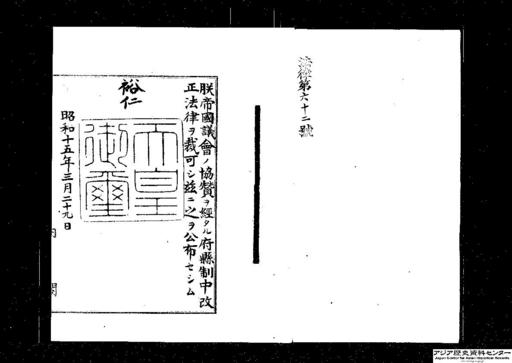 法律第六十二號
朕帝國議會ノ協贊ヲ經タル府縣制中改
正法律ヲ裁可シ茲ニ之ヲ公布セシム
裕仁
天皇
御璽
昭和十五年三月二十九日
内 閣
アジア歴史資料センター
Japan Center for Asian Historical Records